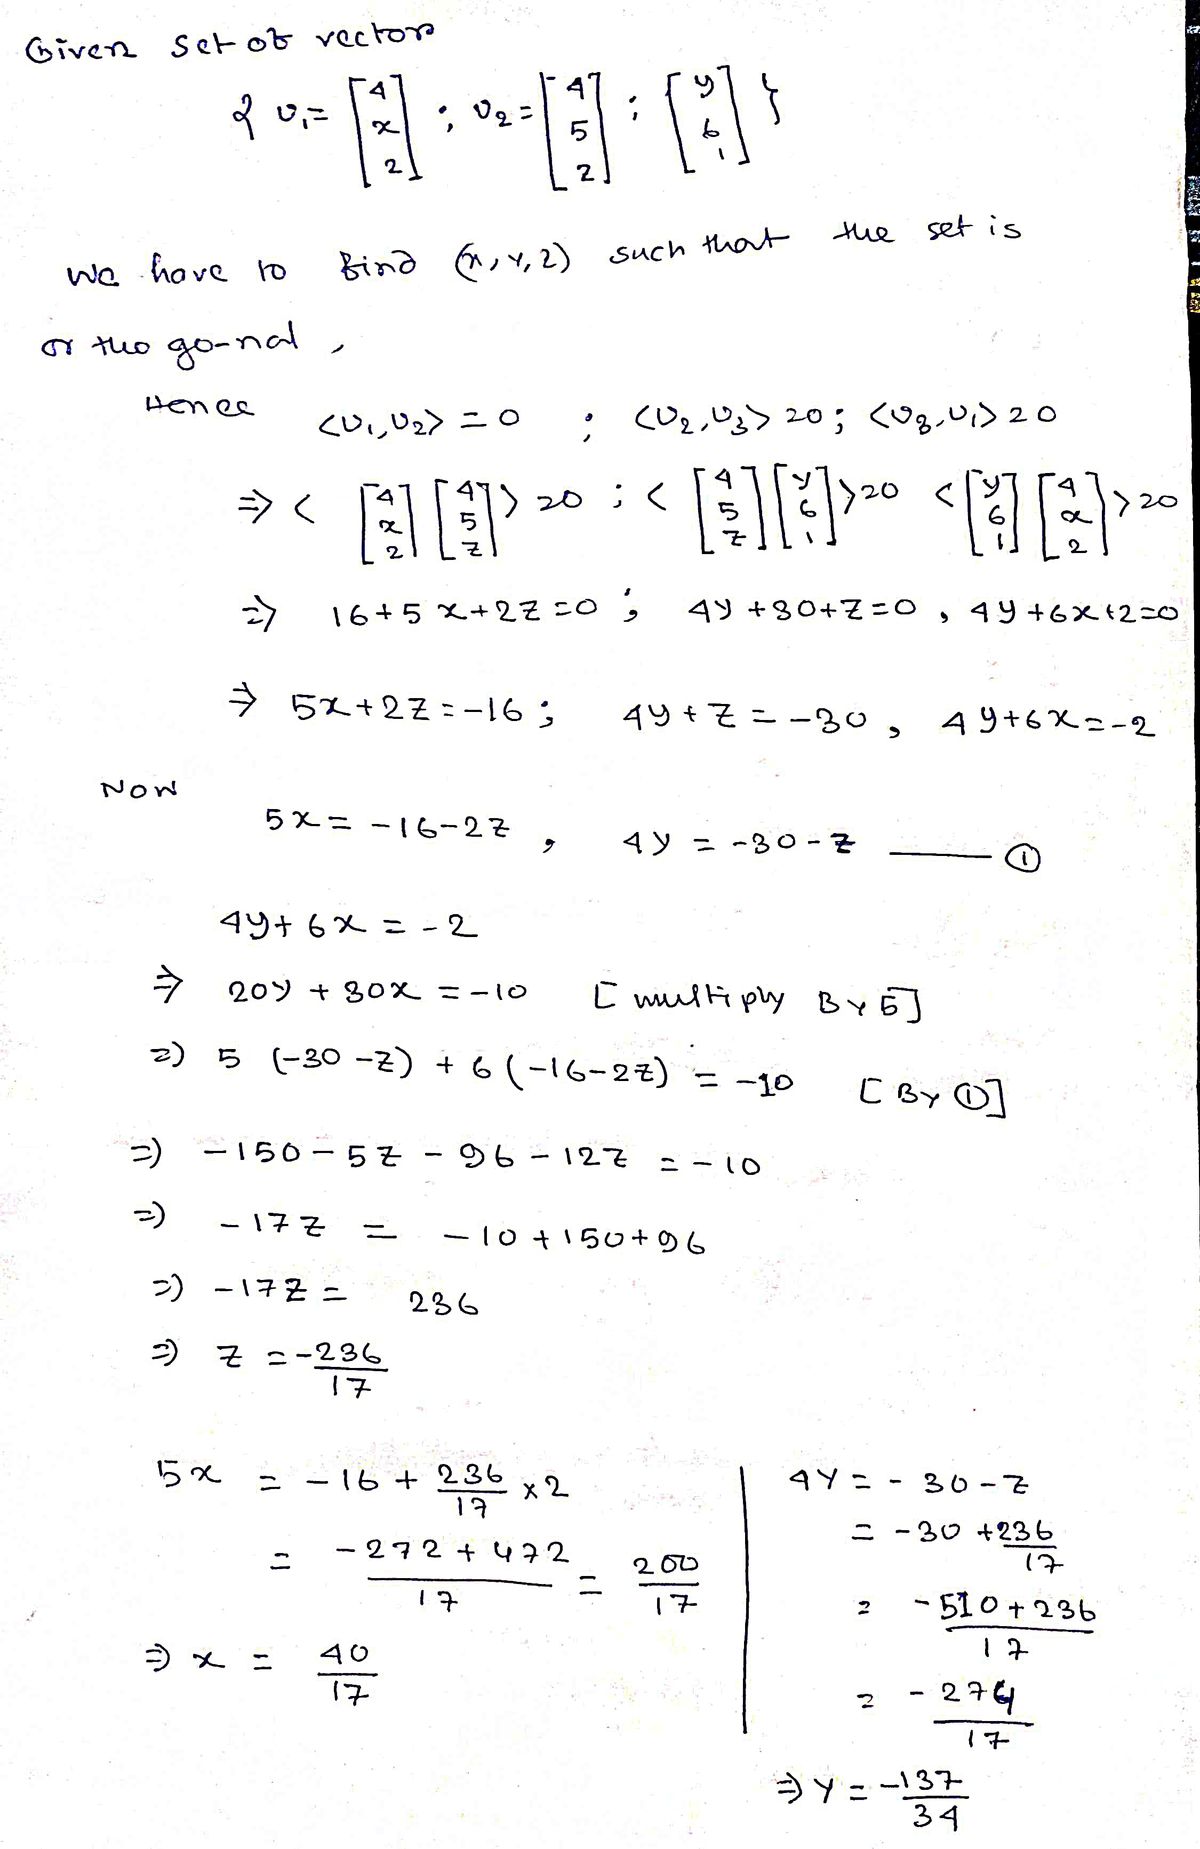 Given set of vectors
{ v₁ = [4 x 2] ; v₂ = [4 5 z] ; [y 6 1] }
We have to find (x, y, z) such that the set is
or tho go-nal ,
Hence <v₁,v₂> = 0 ; <v₂,v₃> = 0 ; <v₃,v₁> = 0
⇒ < [4 x 2] [4 5 z] > = 0 ; < [4 5 z] [y 6 1] > = 0 < [y 6 1] [4 x 2] > = 0
⇒ 16+5x+2z=0 ; 4y+30+z=0 , 4y+6x+2=0
⇒ 5x+2z=-16 ; 4y+z=-30 , 4y+6x=-2
Now
5x = -16-2z , 4y = -30-z —— ①
4y+6x = -2
⇒ 20y+30x = -10 [multiply By 5]
⇒ 5 (-30-z) + 6(-16-2z) = -10 [By ①]
⇒ -150-5z-96-12z = -10
⇒ -17z = -10+150+96
⇒ -17z = 236
⇒ z = -236/17
5x = -16 + 236/17 x 2
= -272+472/17 = 200/17
⇒ x = 40/17
4y = -30-z
= -30+236/17
= -510+236/17
= -274/17
⇒ y = -137/34